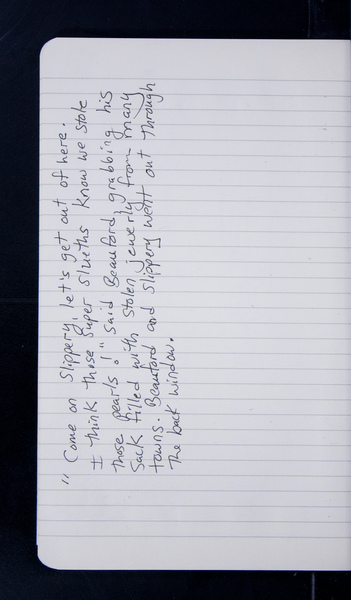 "Come on Slippery, let's get out of here.
I think those super slueths know we stole
those pearls!" said Beauford, grabbing his
sack filled with stolen jewerly from many
towns. Beauford and Slippery went out through
the back window.